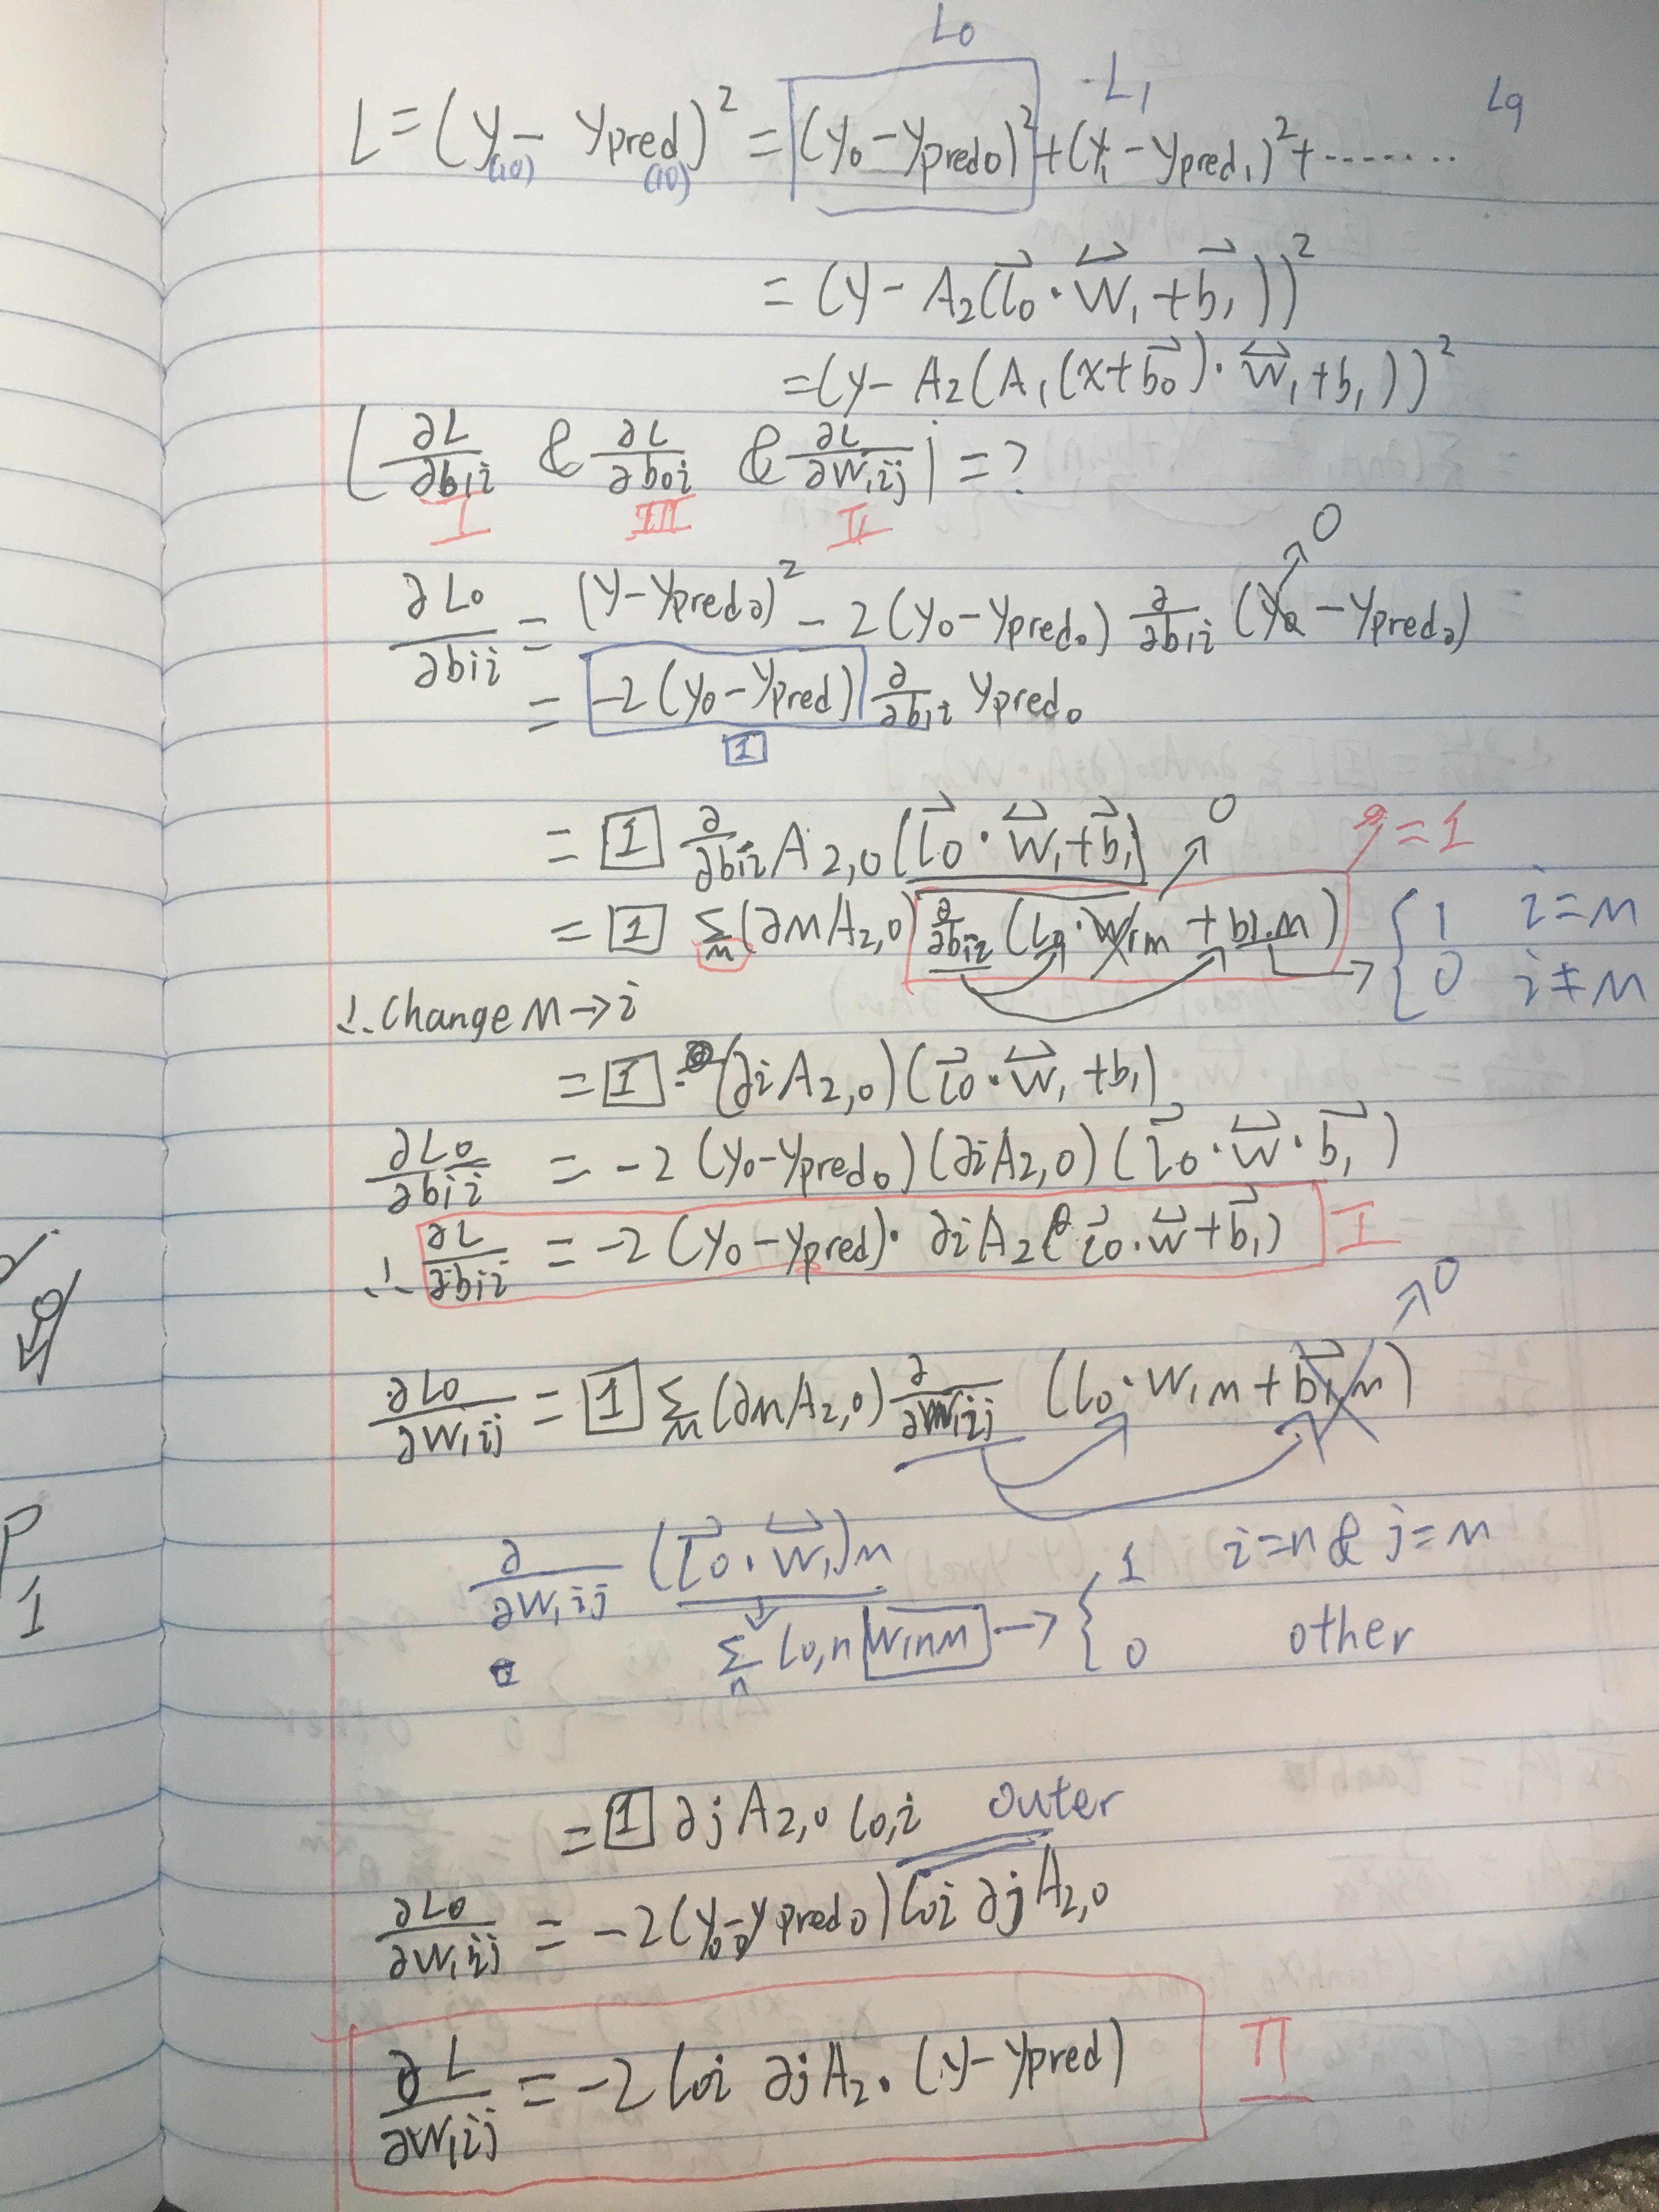 L0
L1
L9
L = (y - ypred)² = (y0 - ypred0)² + (y1 - ypred1)² + ........
(10) (10)
= (y - A2(l0 · W1 + b1))²
= (y - A2(A1(x + b0) · W1 + b1))²
∂L/∂b1i & ∂L/∂b0i & ∂L/∂W1ij = ?
I III II
0
∂L0/∂b1i = (y - ypred0)² - 2(y0 - ypred0) ∂/∂b1i (y0 - ypred0)
= -2(y0 - ypred) ∂/∂b1i ypred0
1
0
= 1 ∂/∂b1i A2,0(l0 · W1 + b1) = 1
= 1 Σm (∂mA2,0) ∂/∂b1i (l0 · W1m + b1,m) → { 1 i=m
0 i≠m
∴ Change m → i
= 1 · (∂iA2,0)(l0 · W1 + b1)
∂L0/∂b1i = -2(y0 - ypred0)(∂iA2,0)(l0 · W · b1)
∴ ∂L/∂b1i = -2(y0 - ypred) · ∂iA2(l0 · W + b1) I
0
∂L0/∂W1ij = 1 Σm (∂mA2,0) ∂/∂W1ij (l0 · W1m + b1m)
∂/∂W1ij (l0 · W1)m
Σn l0,n W1nm → { 1 i=n & j=m
0 other
= 1 ∂jA2,0 l0,i outer
∂L0/∂W1ij = -2(y0 - ypred0) l0i ∂jA2,0
∂L/∂W1ij = -2 l0i ∂jA2 · (y - ypred) II
P
1